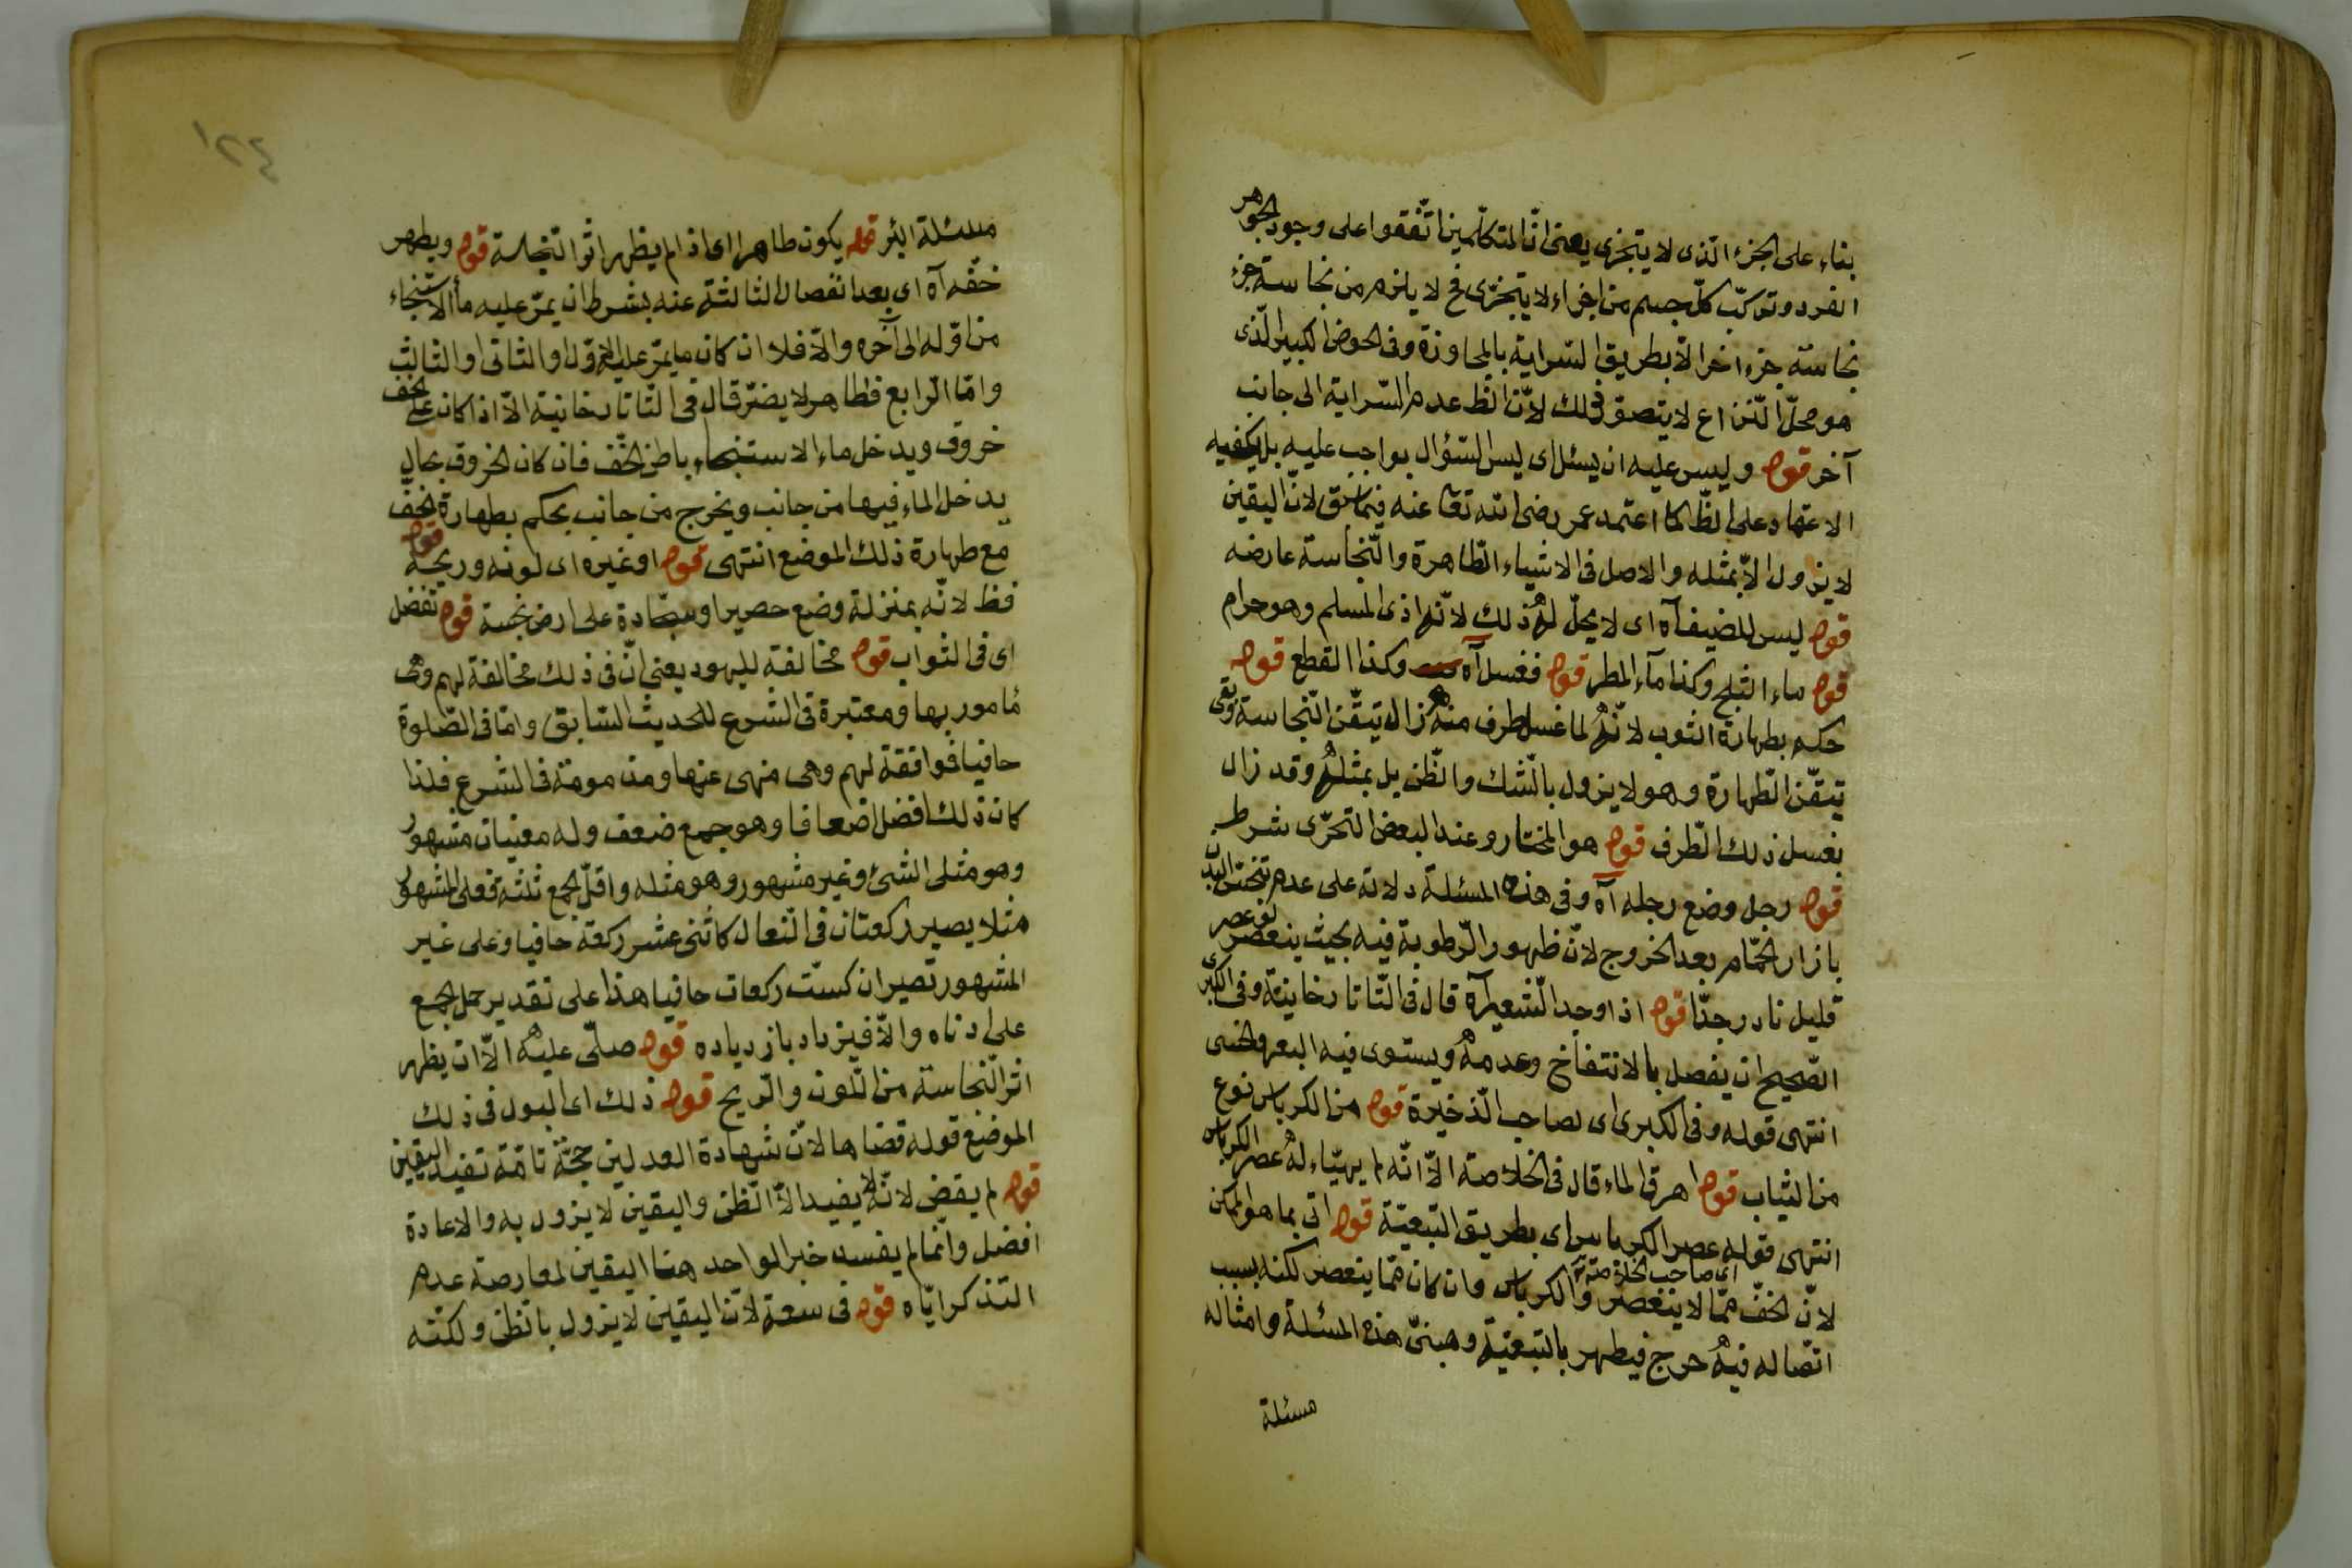 بناء على الجزء الذى لا يتجزى يعنى ان المتكلمين اتفقوا على وجود الجوهر
الفرد وتركب كل جسم من اجزاء لا يتجزى فح لا يلزم من نجاسة جزء
نجاسة جزء اخر الا بطريق السراية بالمجاورة وفى الحوض الكبير الذى
هو محل النزاع لا يتصور ذلك لان الظ عدم السراية الى جانب
آخر قوله وليس عليه ان يسئل اى ليس السؤال بواجب عليه بل يكفيه
الاعتماد على الظ كما اعتمد عمر رضى الله تعا عنه فيما سبق لان اليقين
لا يزول الا بمثله والاصل فى الاشياء الطاهرة والنجاسة عارضه
قوله ليس للضيف آه اى لا يحل له ذلك لانه اذى المسلم وهو حرام
قوله ماء الثلج وكذا مآء المطر قوله فغسل آه وكذا القطع قوله
حكم بطهارة الثوب لانه لما غسل طرف منه زال تيقن النجاسة وبقى
تيقن الطهارة وهو لا يزول بالشك والظن بل بمثله وقد زال
بغسل ذلك الطرف قوله هو المختار وعند البعض التحرى شرط
قوله رجل وضع رجله آه وفى هذه المسئلة دلالة على عدم تنجس البدن
بازار الحمام بعد الخروج لان ظهور الرطوبة فيه بحيث ينعصر لو عصر
قليل نادر جدا قوله اذا وجد الشعير آه قال فى التاتارخانية وفى الكبرى
الصحيح ان يفصل بالانتفاخ وعدمه ويستوى فيه البعر والخثى
انتهى قوله وفى الكبرى اى لصاحب الذخيرة قوله من الكرباس نوع
من الثياب قوله اهرق الماء قال فى الخلاصة الا انه لم يهيّاء له عصر الكرباس
انتهى قوله عصر الكرباس اى بطريق التبعية قوله اتى بما هو الممكن
اى صاحب الخلاصة
لان الخف مما لا ينعصر والكرباس وان كان مما ينعصر لكنه بسبب
اتصاله فيه حرج فيطهر بالتبعية ومبنى هذه المسئلة وامثاله
مسئلة
١٢٤
مسئلة البئر قوله يكون طاهرا اى اذا لم يظهر اثر النجاسة قوله ويطهر
خفه آه اى بعد انفصال الثالثة عنه بشرط ان يمر عليه مأ الاستنجاء
من اوله الى آخره والا فلا ان كان ما يمر عليه الاول او الثانى او الثالث
واما الرابع فطاهر لا يضر قال فى التاتارخانية الا اذا كان على الخف
خروق ويدخل ماء الاستنجاء باطن الخف فان كان الخروق بحال
يدخل الماء فيها من جانب ويخرج من جانب يحكم بطهارة الخف
مع طهارة ذلك الموضع انتهى قوله او غيره اى لونه وريحه قوله
فظ لانه بمنزلة وضع حصير او سجادة على ارض نجسة قوله تفضل
اى فى الثواب قوله مخالفة لليهود يعنى ان فى ذلك مخالفة لهم وهى
مأمور بها ومعتبرة فى الشرع للحديث السابق واما فى الصلوة
حافيا فموافقة لهم وهى منهى عنها ومذمومة فى الشرع فلذا
كان ذلك افضل اضعافا وهو جمع ضعف وله معنيان مشهور
وهو مثلى الشئ وغير مشهور وهو مثله واقل الجمع ثلثة فعلى المشهور
مثلا يصير ركعتان فى النعال كاثنى عشر ركعة حافيا وعلى غير
المشهور تصيران كست ركعات حافيا هذا على تقدير حمل الجمع
على ادناه والا فيزداد بازدياده قوله صلى عليه الا ان يظهر
اثر النجاسة من اللون والريح قوله ذلك اى البول فى ذلك
الموضع قوله قضاها لان شهادة العدلين حجة تامة تفيد اليقين
قوله لم يقض لانه لا يفيد الا الظن واليقين لا يزول به والاعادة
افضل وانما لم يفسد خبر الواحد هنا اليقين لمعارضة عدم
التذكر اياه قوله فى سعة لان اليقين لا يزول بالظن ولكنه